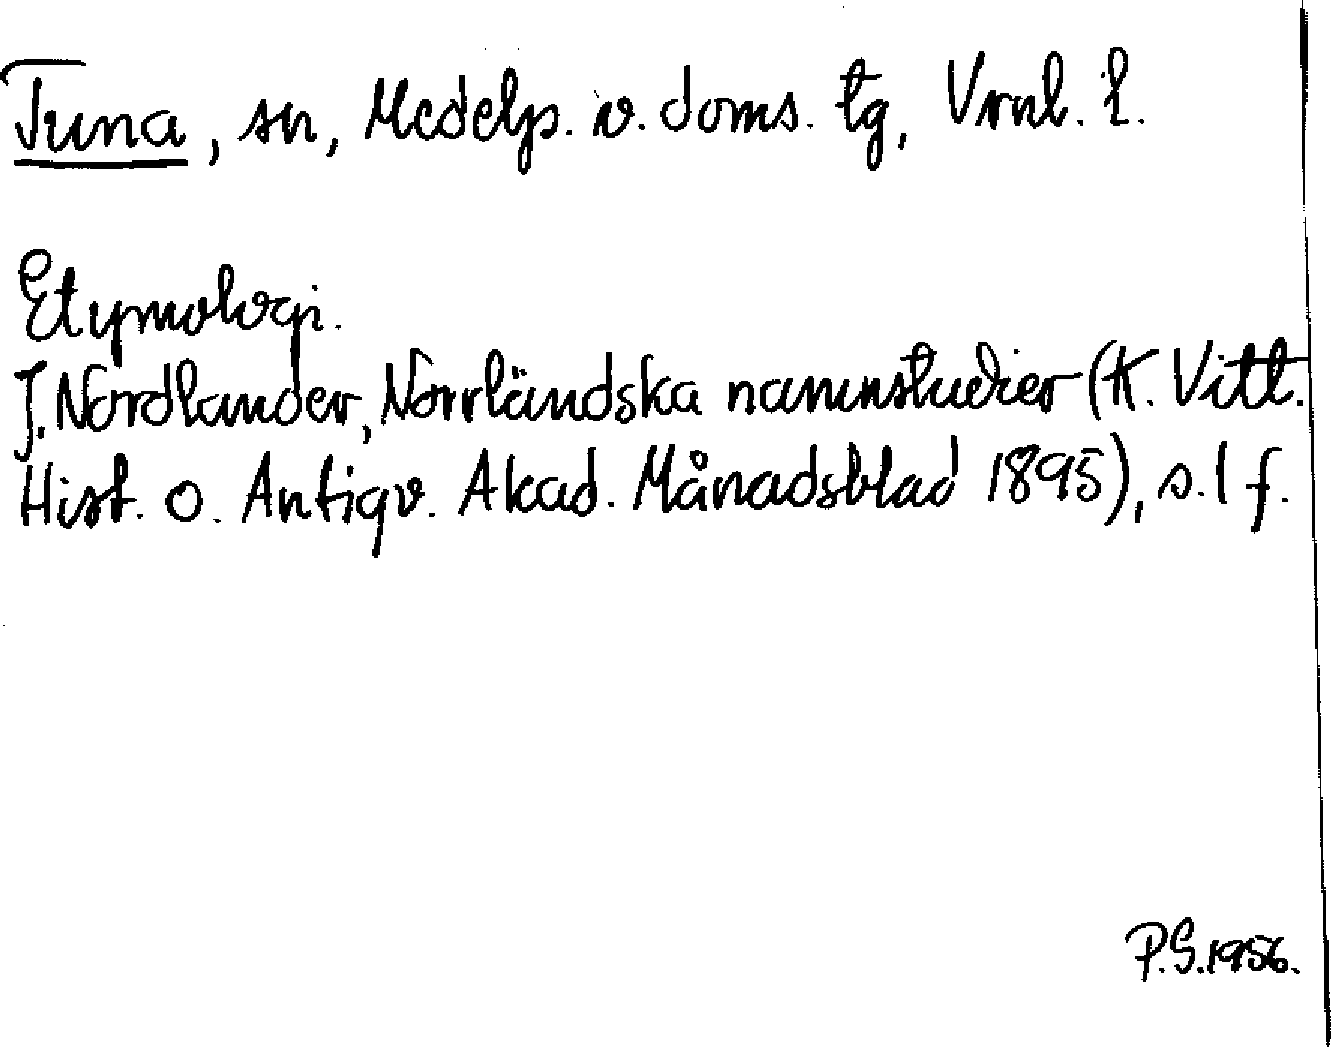 Tuna, sn, Medelp. v. doms. tg, Vrnl. l.
Etymologi.
J. Nordlander, Norrländska namnstudier (K. Vitt.
Hist. o. Antiqv. Akad. Månadsblad 1895), s. 1 f.
P.S. 1956.